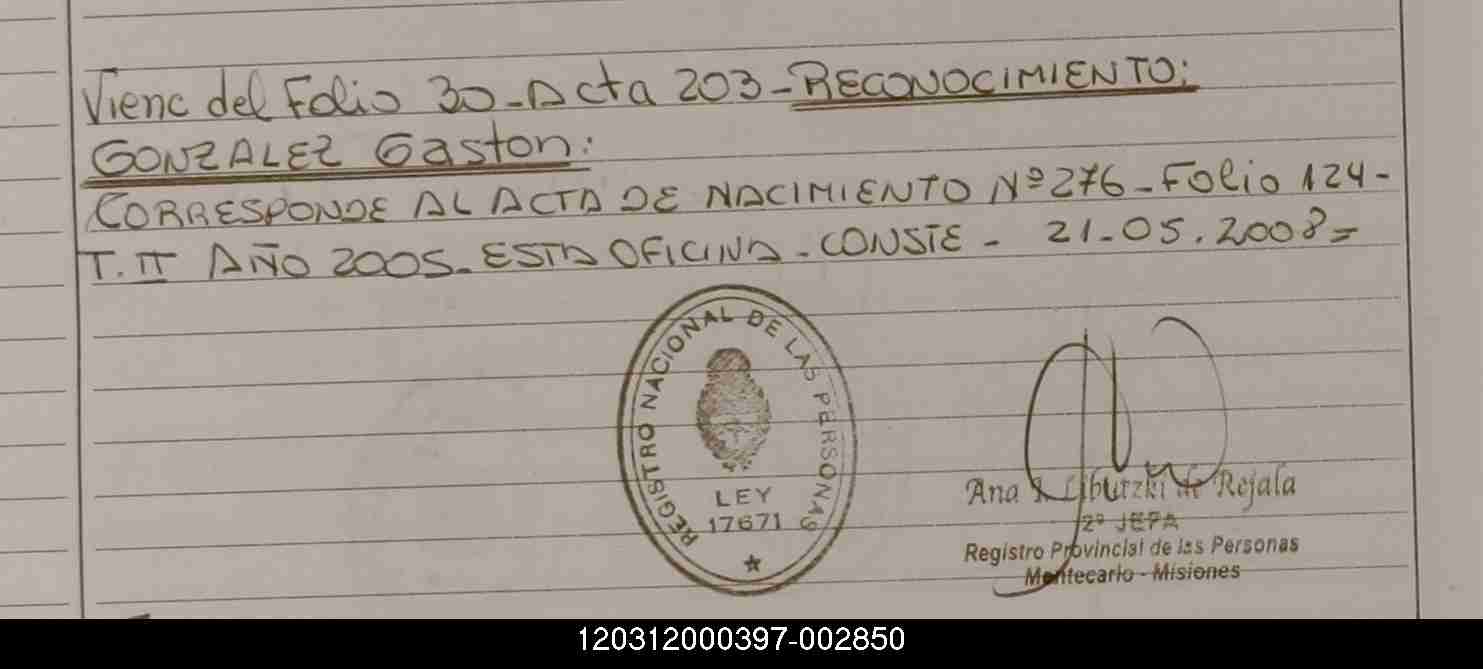 Viene del Folio 30-Acta 203-RECONOCIMIENTO:
GONZALEZ Gaston:
CORRESPONDE AL ACTA DE NACIMIENTO Nº276-Folio 124-
T.II AÑO 2005-ESTA OFICINA-CONSTE- 21-05.2008=
REGISTRO NACIONAL DE LAS PERSONAS
LEY
17671
Ana de Rejala
2º JEFA
Registro Provincial de las Personas
Montecarlo - Misiones
120312000397-002850